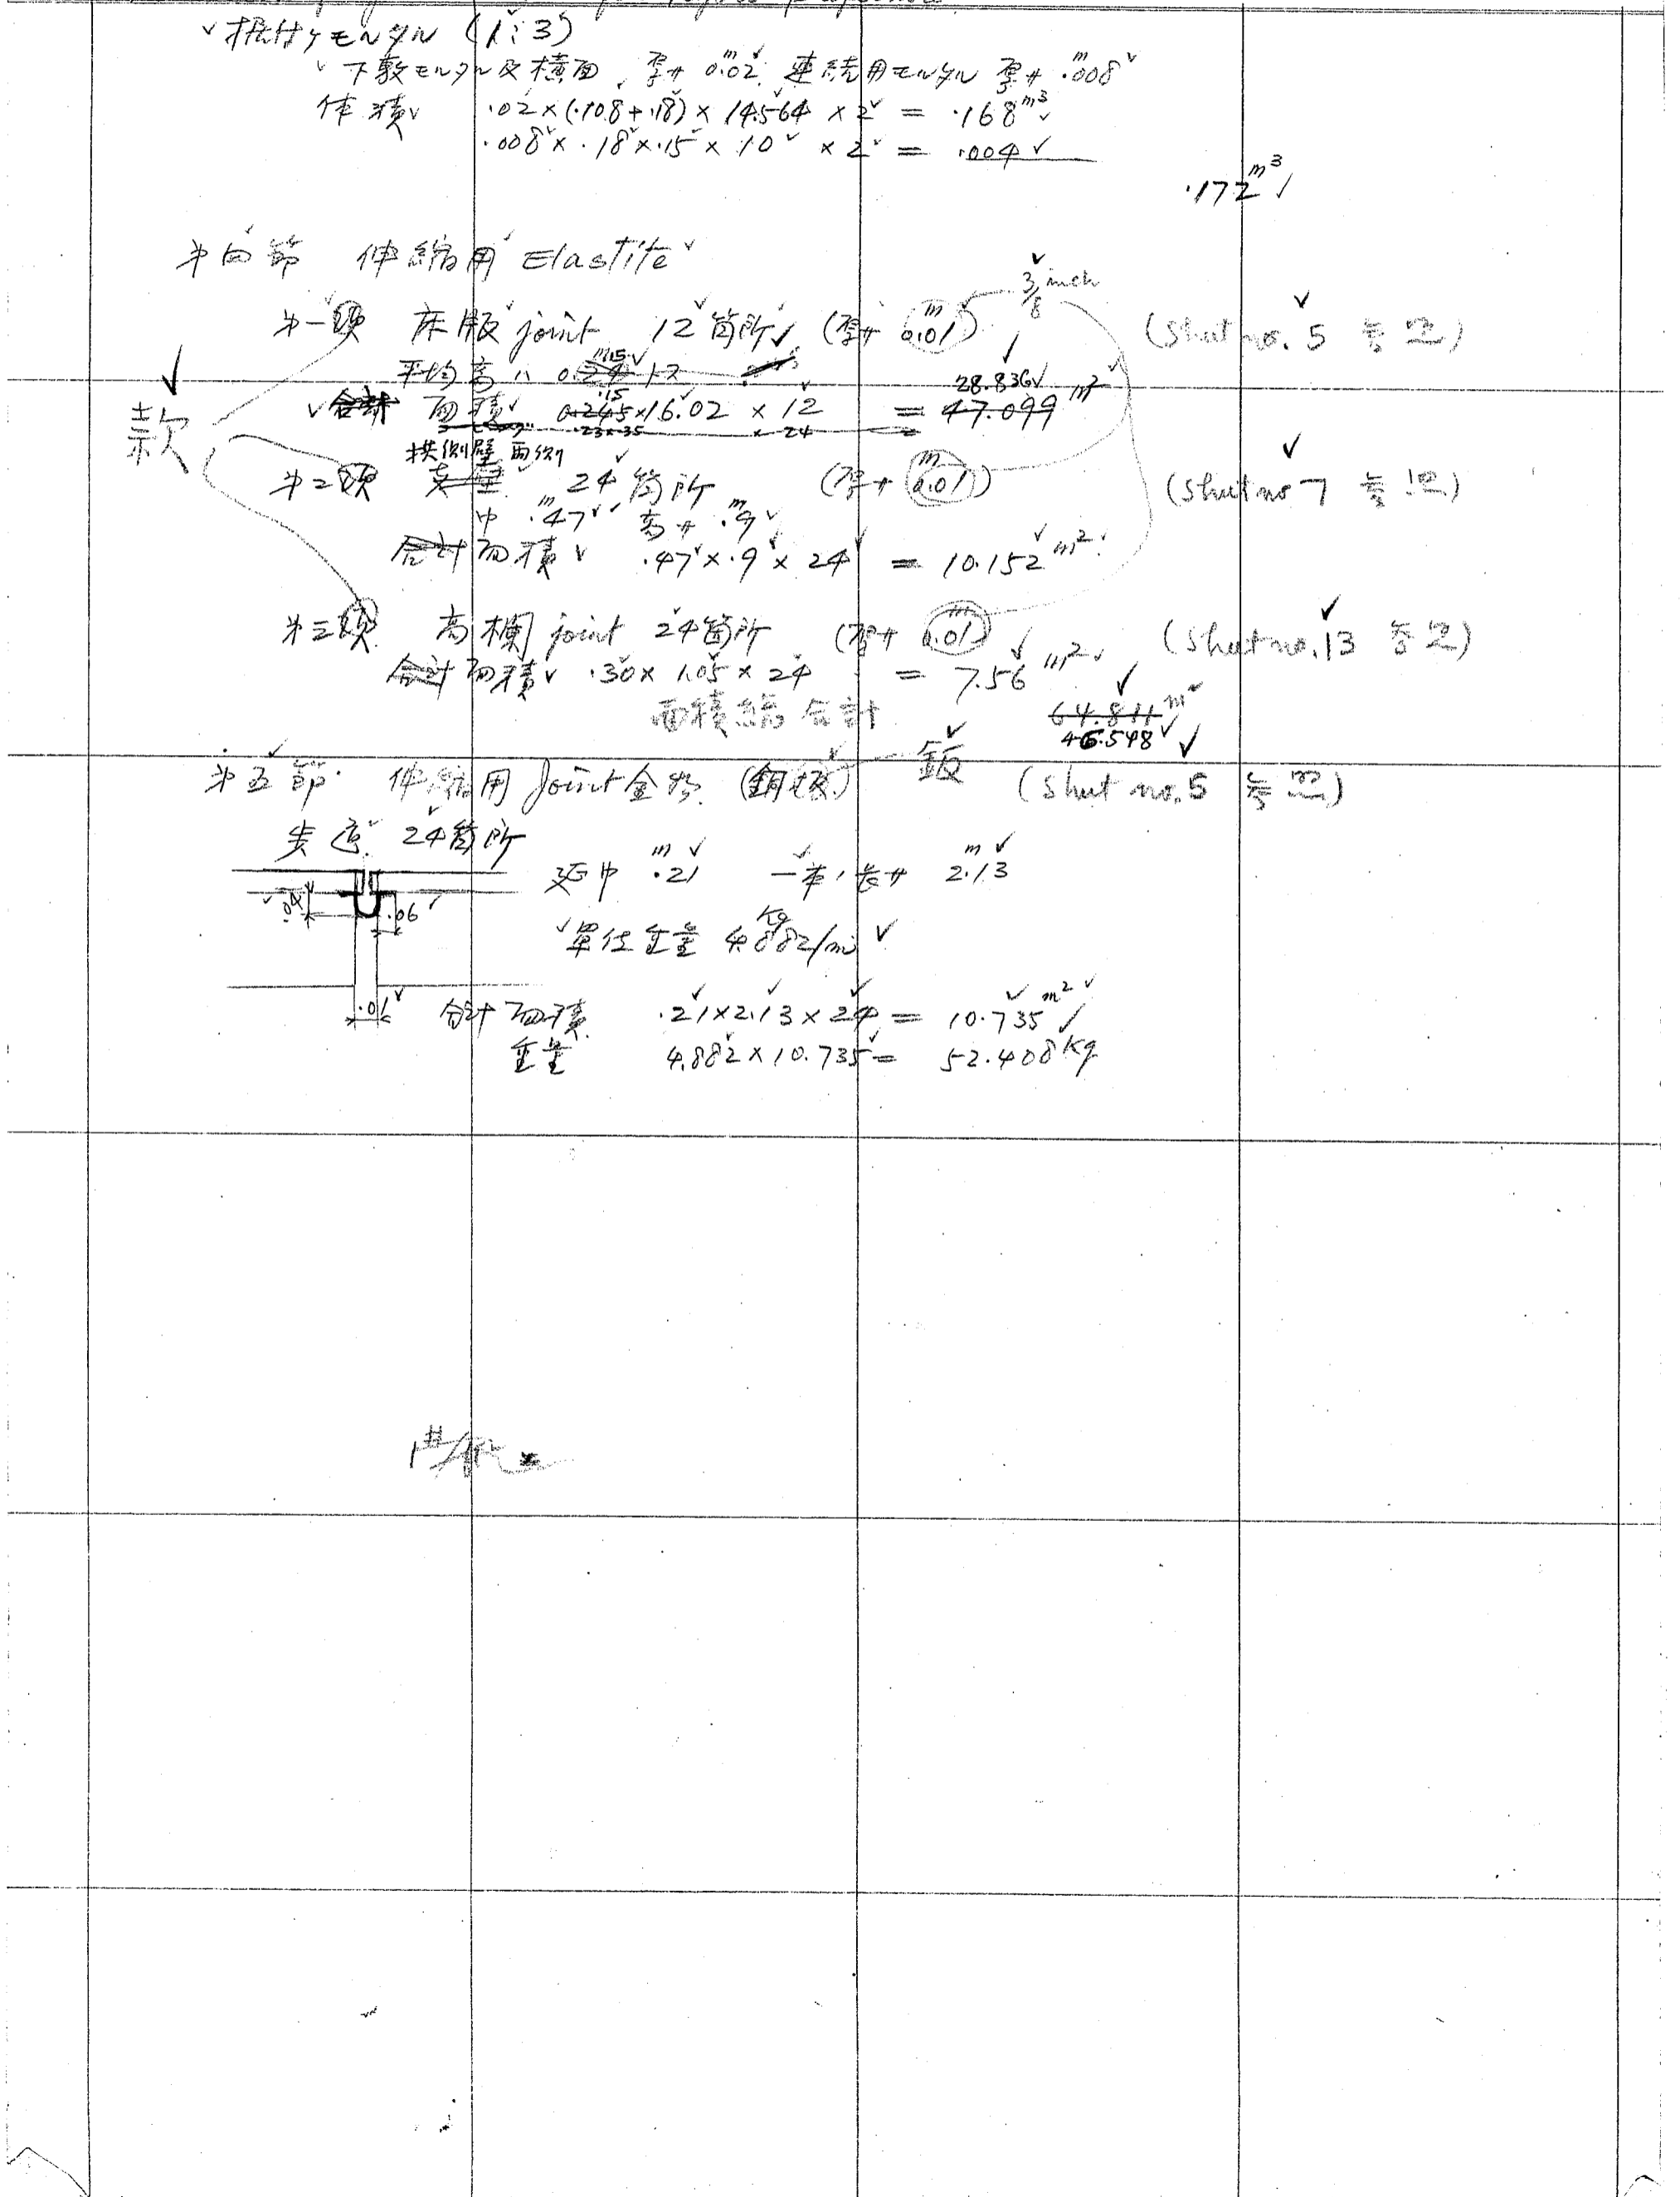 据付ケモルタル (1:3)
下敷モルタル及横面 厚サ 0.02m 連結用モルタル 厚サ .008m
体積 .02×(.108+.18)×14.564×2 = .168m³
.008×.18×.15×10×2 = .004
.172m³
第四節 伸縮用 Elastite
3/8 inch
第一項 床版 joint 12箇所 (厚サ 0.01m) (Sheet no. 5 参照)
平均高
28.836
.15
款 合計 面積 0.245×16.02×12 = 47.099 m²
.23×.35 × 24 =
拱側壁両側
第二項 24箇所 (厚サ 0.01m) (Sheet no 7 参照)
巾 .47m 高サ .9m
合計面積 .47×.9×24 = 10.152m²
第三項 高欄 joint 24箇所 (厚サ 0.01m) (Sheet no. 13 参照)
合計面積 .30×1.05×24 = 7.56m²
面積総合計 64.811m²
46.548
第五節 伸縮用 Joint金物 (銅板) 鈑 (Sheet no. 5 参照)
歩道 24箇所
延巾 .21m 一本ノ長サ 2.13m
.04 .06
單位重量 4.882kg/m²
.01 合計面積 .21×2.13×24 = 10.735m²
重量 4.882×10.735 = 52.408Kg